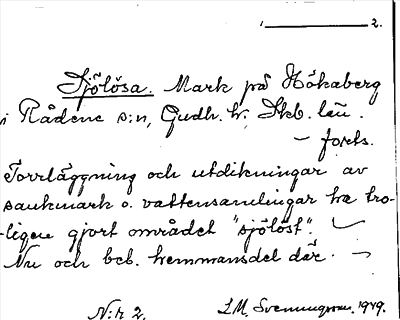 2.
Sjölösa. Mark på Hökaberg
i Rådene s:n, Gudh. hr. Skb. län.
– forts.
Torrläggning och utdikningar av
sankmark o. vattensamlingar ha tro-
ligen gjort området "sjölöst".
Nu och beb. hemmansdel där.
N:r 2. I.M. Svenningsson. 1949.